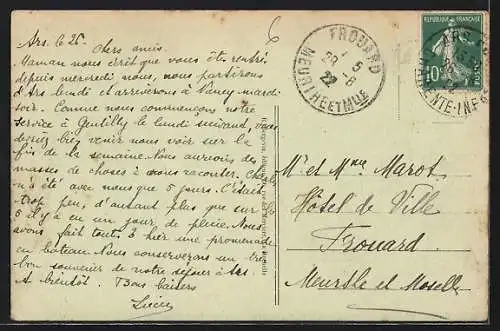 Ars. le 26.
Chers amis.
Maman nous écrit que vous êtes rentrés
depuis mercredi nous, nous partirons
d'Ars lundi et arriverons à Nancy mardi
soir. Comme nous commençons notre
service à Gentilly le lundi suivant, vous
devriez bien venir nous voir sur la
fin de la semaine. Nous aurions des
masses de choses à vous raconter. Charles
n'a été avec nous que 5 jours. C'était
trop peu, d'autant plus que sur
5 il y a eu un jour de pluie. Nous
avons fait tout hier une promenade
en bateau. Nous conserverons un très
bon souvenir de notre séjour à Ars.
A bientôt. Bons baisers
Lucien
6
FROUARD
MEURTHE ET MLLE
28-8
22
REPUBLIQUE FRANÇAISE
10c
POSTES
ARS
CHARENTE-INF
Mr et Mme Marot
Hôtel de Ville
Frouard
Meurthe et Moselle